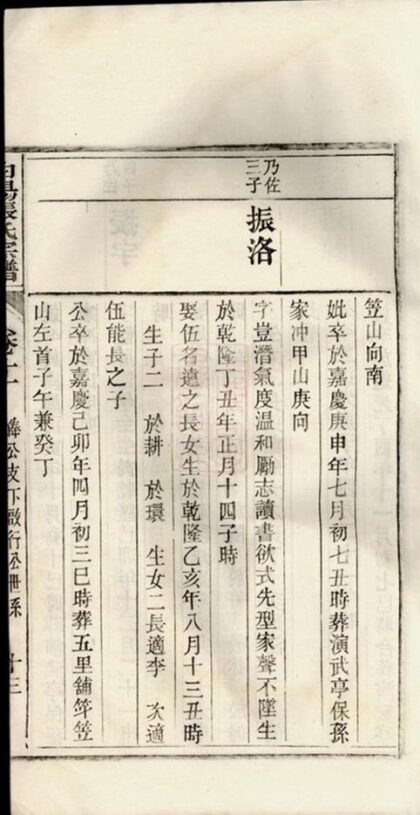 乃佐
三子
振洛
笠山向南
妣卒於嘉慶庚申年七月初七丑時葬演武亭保孫
家冲甲山庚向
字豈潛氣度温和勵志讀書欲式先型家聲不墜生
於乾隆丁丑年正月十四子時
娶伍名遠之長女生於乾隆乙亥年八月十三丑時
生子二 於耕 於環 生女二長適李 次適
伍能長之子
公卒於嘉慶己卯年四月初三巳時葬五里舖笄笠
山左首子午兼癸丁
張氏宗譜 卷十一 公支下啟行公世系 十三